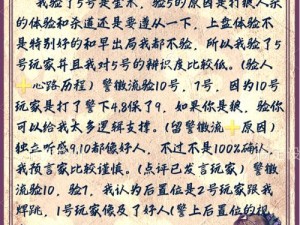 我验了5号是金水，验5的原因是打狼人杀
的体验和杀道还是要遵从一下，上盘体验不
是特别好的和早出局我都不验，所以我验了5
号玩家并且我对5号的辩识度比较低。(验人
心路历程）警徽流验10号，7号，因为10号
玩家是打了警下4.8保了9，如果你是狼，验你
可以给我太多逻辑支撑。(留警徽流 原因）
独立听感9,10都像好人，不过不是100%确认，
我预言家比较谨慎。(点评已发言玩家）警徽
流验10，验7。我认为后置位是2号玩家跟我
焊跳，1号玩家像及了好人(警上后置位的视